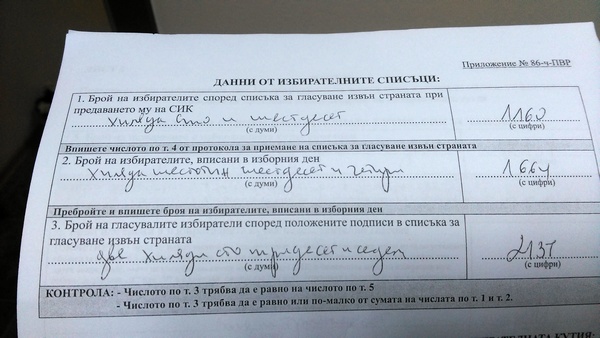 Приложение № 86-ч-ПВР
ДАННИ ОТ ИЗБИРАТЕЛНИТЕ СПИСЪЦИ:
1. Брой на избирателите според списъка за гласуване извън страната при
предаването му на СИК
хиляда сто и шестдесет
(с думи)
1160
(с цифри)
Впишете числото по т. 4 от протокола за приемане на списъка за гласуване извън страната
2. Брой на избирателите, вписани в изборния ден
хиляда шестотин шестдесет и четири
(с думи)
1664
(с цифри)
Пребройте и впишете броя на избирателите, вписани в изборния ден
3. Брой на гласувалите избиратели според положените подписи в списъка за
гласуване извън страната
две хиляди сто тридесет и седем
(с думи)
2137
(с цифри)
КОНТРОЛА: - Числото по т. 3 трябва да е равно на числото по т. 5
- Числото по т. 3 трябва да е равно или по-малко от сумата на числата по т. 1 и т. 2.